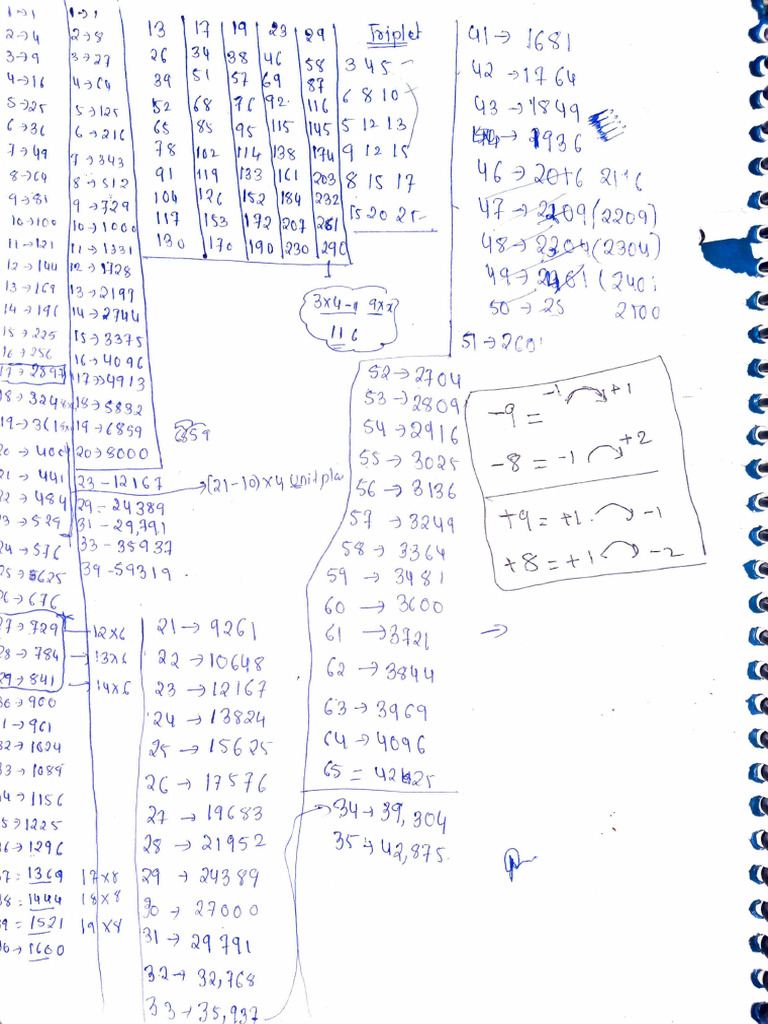 1→1
2→4
3→9
4→16
5→25
6→36
7→49
8→64
9→81
10→100
11→121
12→144
13→169
14→196
15→225
16→256
17→289
18→324
19→361
20→400
21→441
22→484
23→529
24→576
25→625
26→676
27→729 → 12×6
28→784 → 13×6
29→841 → 14×6
30→900
1→961
32→1024
33→1089
34→1156
5→1225
36→1296
37: 1369 17×8
38: 1444 18×8
39=1521 19×8
40→1600
1→1
2→8
3→27
4→64
5→125
6→216
7→343
8→512
9→729
10→1000
11→1331
12→1728
13→2197
14→2744
15→3375
16→4096
17→4913
18→5832
19→6859
20→8000
23-12167 → (21-10)×4 Unit pla
29-24389
31-29,791
33-35937
39-59319
13 17 19 23 29
26 34 38 46 58
39 51 57 69 87
52 68 76 92 116
65 85 95 115 145
78 102 114 138 174
91 119 133 161 203
104 126 152 184 232
117 153 172 207 261
130 170 190 230 290
Triplet
3 4 5
6 8 10
5 12 13
9 12 15
8 15 17
15 20 25
11 6
21→9261
22→10648
23→12167
24→13824
25→15625
26→17576
27→19683
28→21952
29→24389
30→27000
31→29791
32→32,768
33→35,937
41→1681
42→1764
43→1849
1936
46→2016 2116
47→2209 (2209)
48→2304 (2304)
49→ (240
50→25 2500
51→2601
52→2704
53→2809
54→2916
55→3025
56→3136
57→3249
58→3364
59→3481
60→3600
61→3721 →
62→3844
63→3969
64→4096
65=4225
34→39,304
35→42,875
-9 = -1 +1
-8 = -1 +2
+9 = +1 -1
+8 = +1 -2